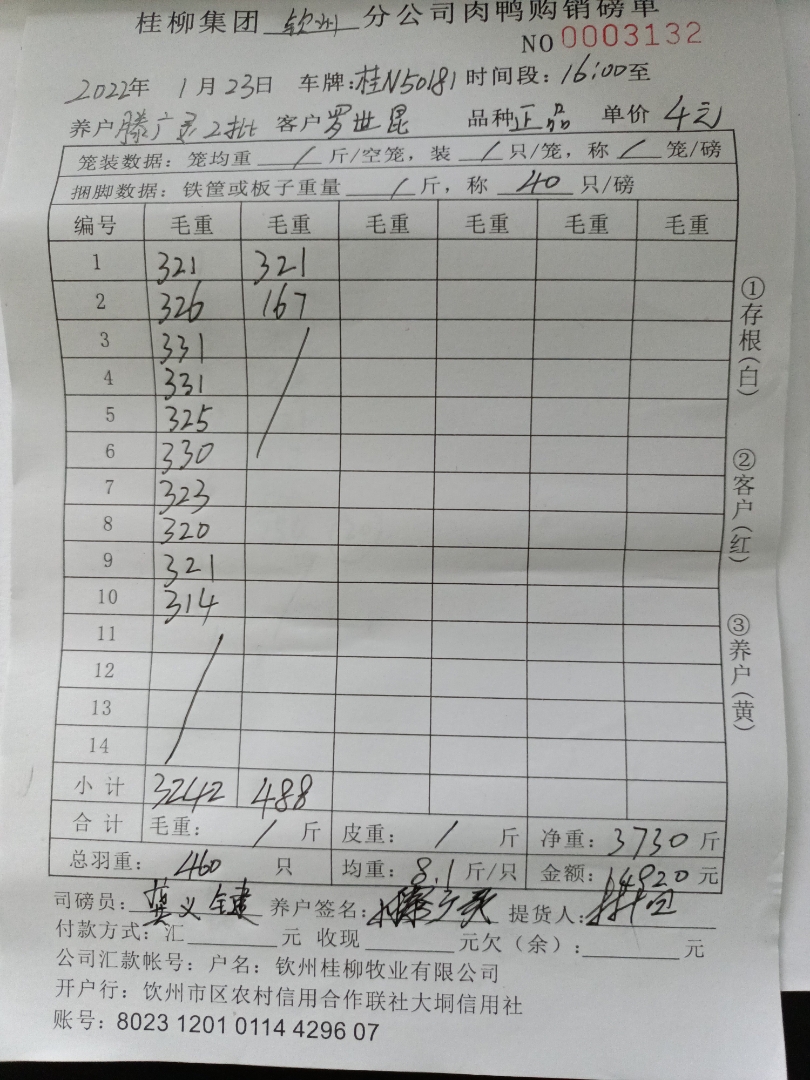 桂柳集团 钦州 分公司肉鸭购销磅单
NO 0003132
2022年 1月23日 车牌:桂N50181 时间段:16:00至
养户 滕广灵2批 客户 罗世昆 品种 正品 单价 4元
笼装数据:笼均重 / 斤/空笼,装 / 只/笼,称 / 笼/磅
捆脚数据:铁筐或板子重量 / 斤,称 40 只/磅
编号 毛重 毛重 毛重 毛重 毛重 毛重
1 321 321
2 326 167
3 331
4 331
5 325
6 330
7 323
8 320
9 321
10 314
11
12
13
14
小计 3242 488
合计 毛重: / 斤 皮重: / 斤 净重:3730 斤
总羽重: 460 只 均重:8.1 斤/只 金额:14920 元
司磅员: 龚义健 养户签名: 提货人:
付款方式:汇 元 收现 元欠(余): 元
公司汇款帐号:户名:钦州桂柳牧业有限公司
开户行:钦州市区农村信用合作联社大垌信用社
账号:8023 1201 0114 4296 07
①存根(白)
②客户(红)
③养户(黄)